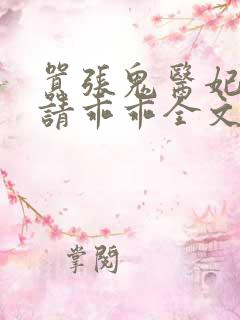 囂張鬼醫妃
請乖乖全文
掌閱